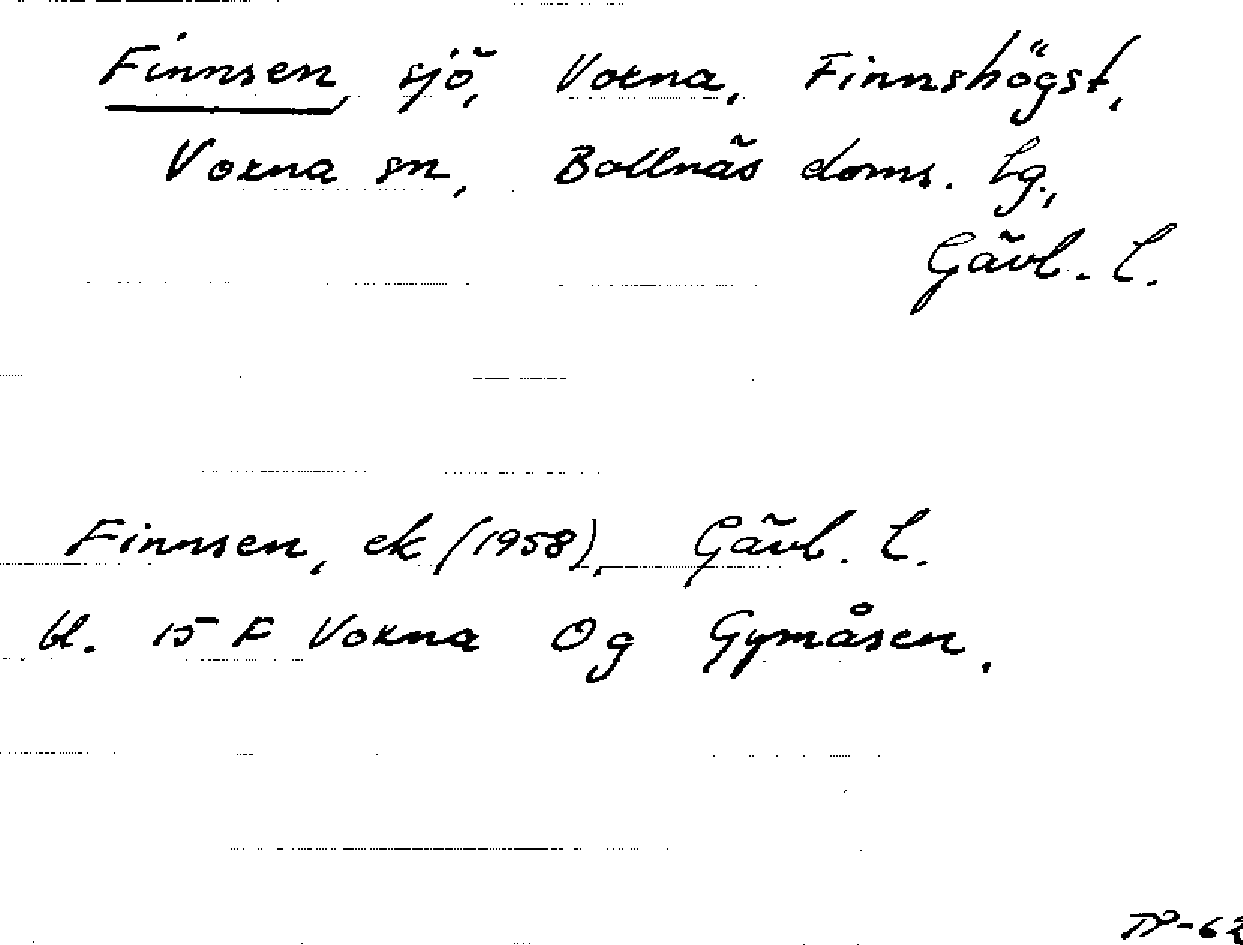 Finnsen, sjö, Voxna, Finnshögst,
Voxna sn, Bollnäs doms. lg.,
Gävl. l.
Finnsen, ek (1958), Gävl. l.
bl. 15 F Voxna 0g Gymåsen.
TP-62